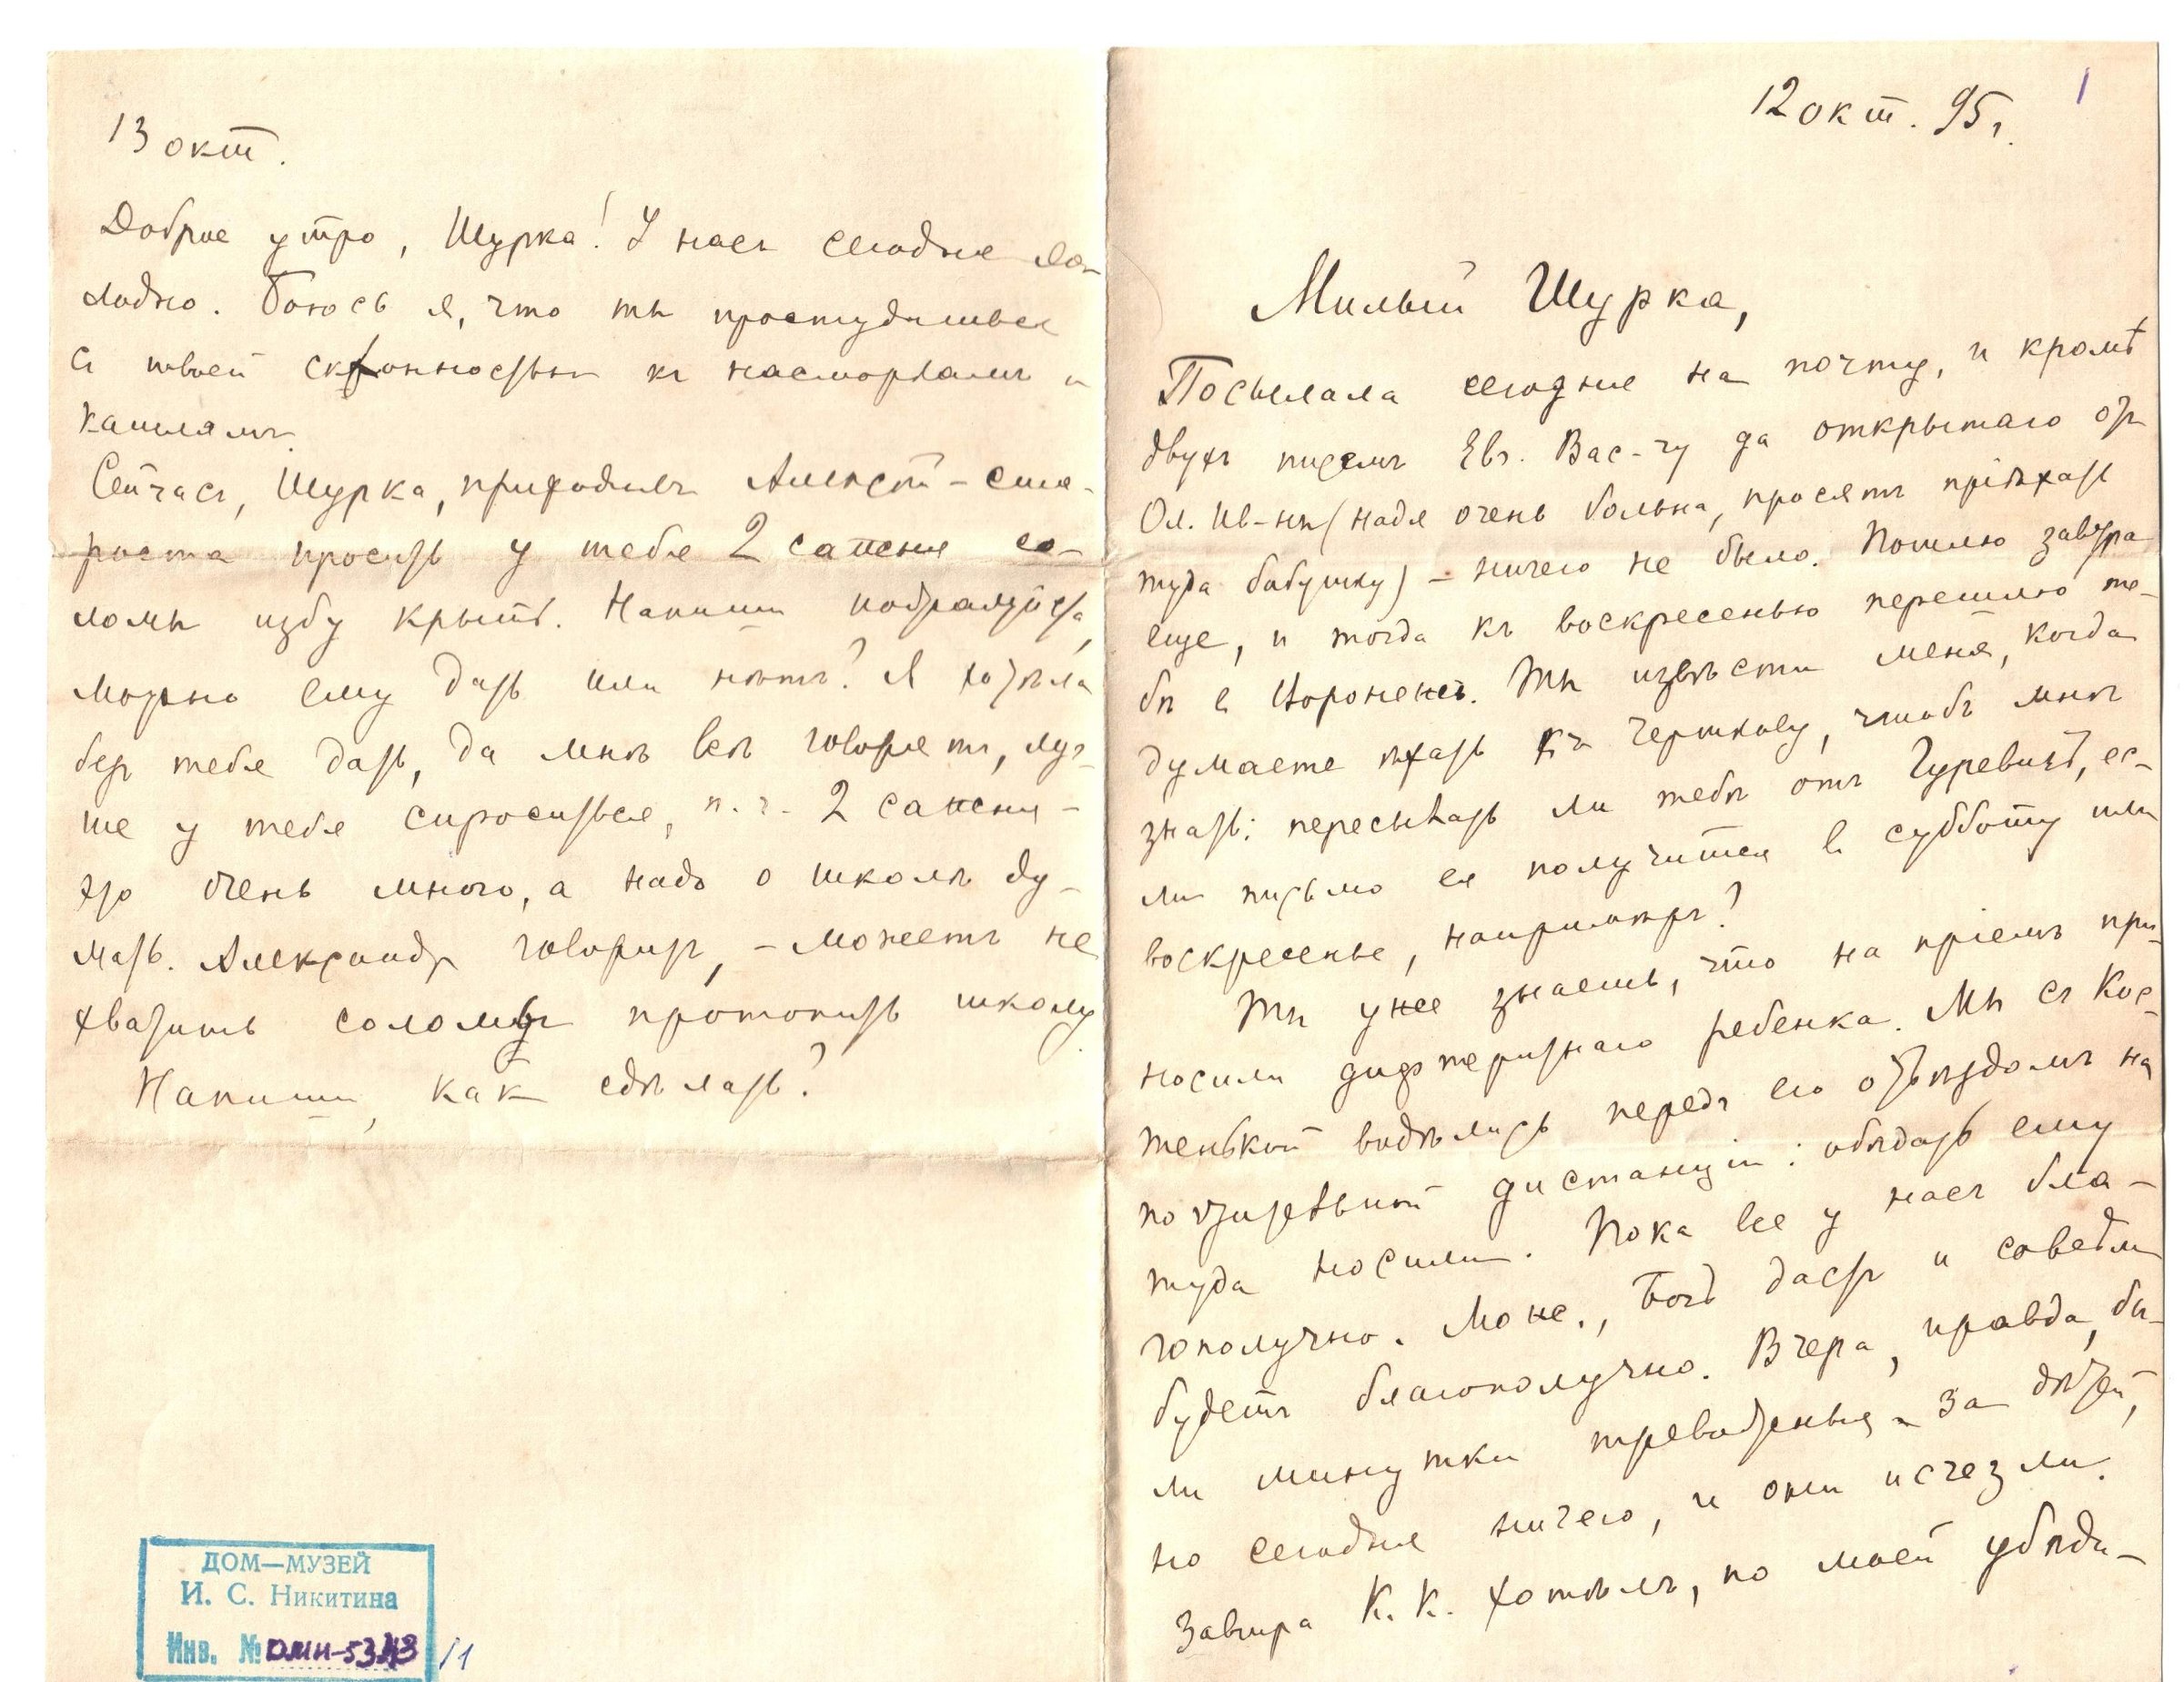 12 окт. 95 г.
1
Милый Шурка,
Посылала сегодня на почту, и кромѣ
двухъ писемъ Евг. Вас-чу да открытаго отъ
Ол. Ив-ны (Надя очень больна, просятъ пріѣхать
туда бабушку) – ничего не было. Пошлю завтра
еще, и тогда къ воскресенью перешлю те-
бѣ в Воронежъ. Ты извѣсти меня, когда
думаете ѣхать къ Черткову, чтобъ мнѣ
знать: пересылать ли тебѣ отъ Гуревичъ, ес-
ли письмо ея получится в субботу или
воскресенье, напримѣръ?
Ты уже знаешь, что на пріемъ при-
носили дифтеритнаго ребенка. Мы съ Кос-
тенькой водѣлись передъ его отъѣздомъ на
дистанціи: обѣдать ему
туда носили. Пока все у насъ бла-
гополучно. Може., Богъ дастъ и совсѣмъ
будетъ благополучно. Вчера, правда, бы-
ли минутки тревожныя за дѣтей,
но сегодня ничего, и они исчезли.
Завтра К. К. хотѣлъ, по моей убѣди-
13 окт.
Доброе утро, Шурка! У насъ сегодня хо-
лодно. Боюсь я, что ты простудишься
съ твоей склонностью къ насморкамъ и
кашлямъ
Сейчасъ, Шурка, приходилъ Алексѣй – ста-
роста просить у тебя 2 сажня со-
ломы избу крыть. Напиши пожалуйста,
можно ему дать или нѣтъ? Я хотѣла
безъ тебя дать, да мнѣ всѣ говорятъ, луч-
ше у тебя спроситься, п. ч. 2 сажня –
это очень много, а надо о школѣ ду-
мать. Александръ говоритъ, – можетъ не
хватить соломы протопить школу
Напиши, какъ сдѣлать?
ДОМ—МУЗЕЙ
И. С. Никитина
Инв. № ДМН-5343/1